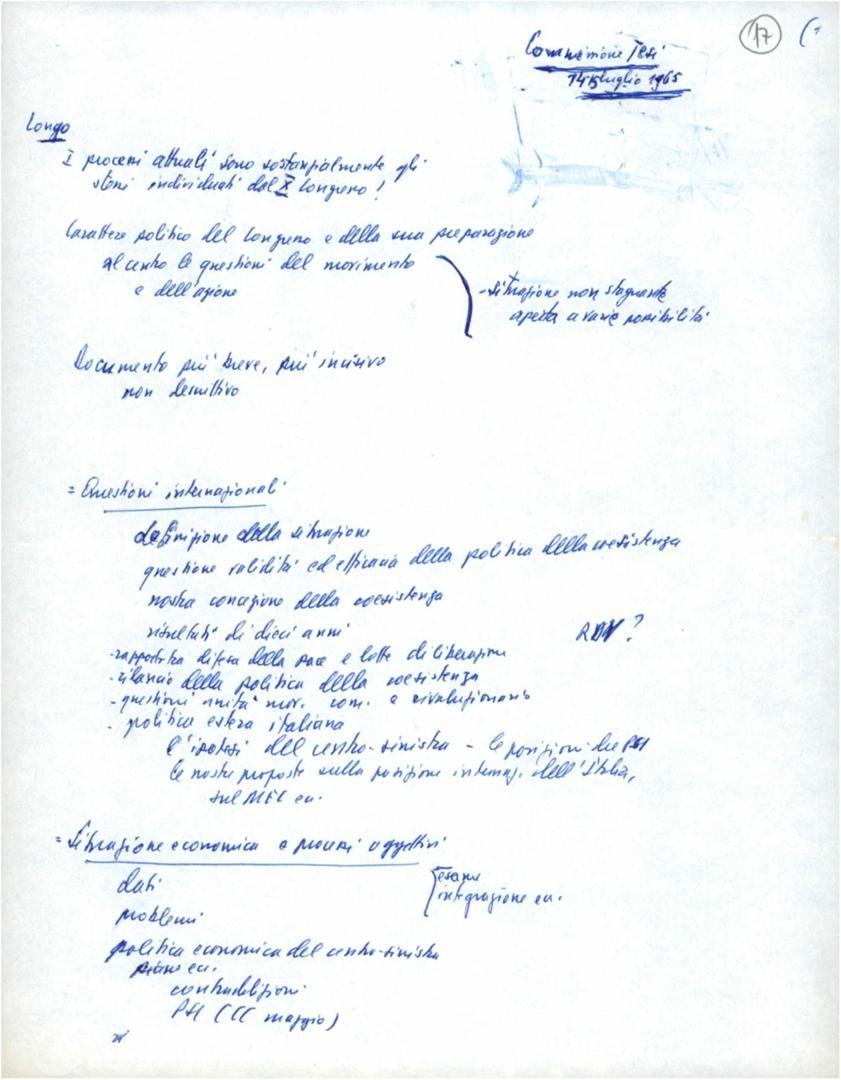 17 (
Commissione Tesi
14 luglio 1965
Longo
I processi attuali sono sostanzialmente gli
stessi individuati dal X Congresso!
Carattere politico del Congresso e della sua preparazione
al centro le questioni del movimento
e dell'azione
- situazione non stagnante
aperta a varie possibilità
Documento più breve, più incisivo
non descrittivo
= Questioni internazionali
definizione della situazione
questione validità ed efficacia della politica della coesistenza
nostra concezione della coesistenza
risultati di dieci anni
?
- rapporto tra difesa della pace e lotte di liberazione
- rilancio della politica della coesistenza
- questioni unità mov. com. e rivoluzionario
- politica estera italiana
l'ipotesi del centro-sinistra - le posizioni del PSI
le nostre proposte sulla posizione internaz. dell'Italia,
sul MEC ecc.
= Situazione economica e processi oggettivi
dati
esame
integrazione ecc.
problemi
politica economica del centro-sinistra
piano ecc.
contraddizioni
PSI (CC maggio)